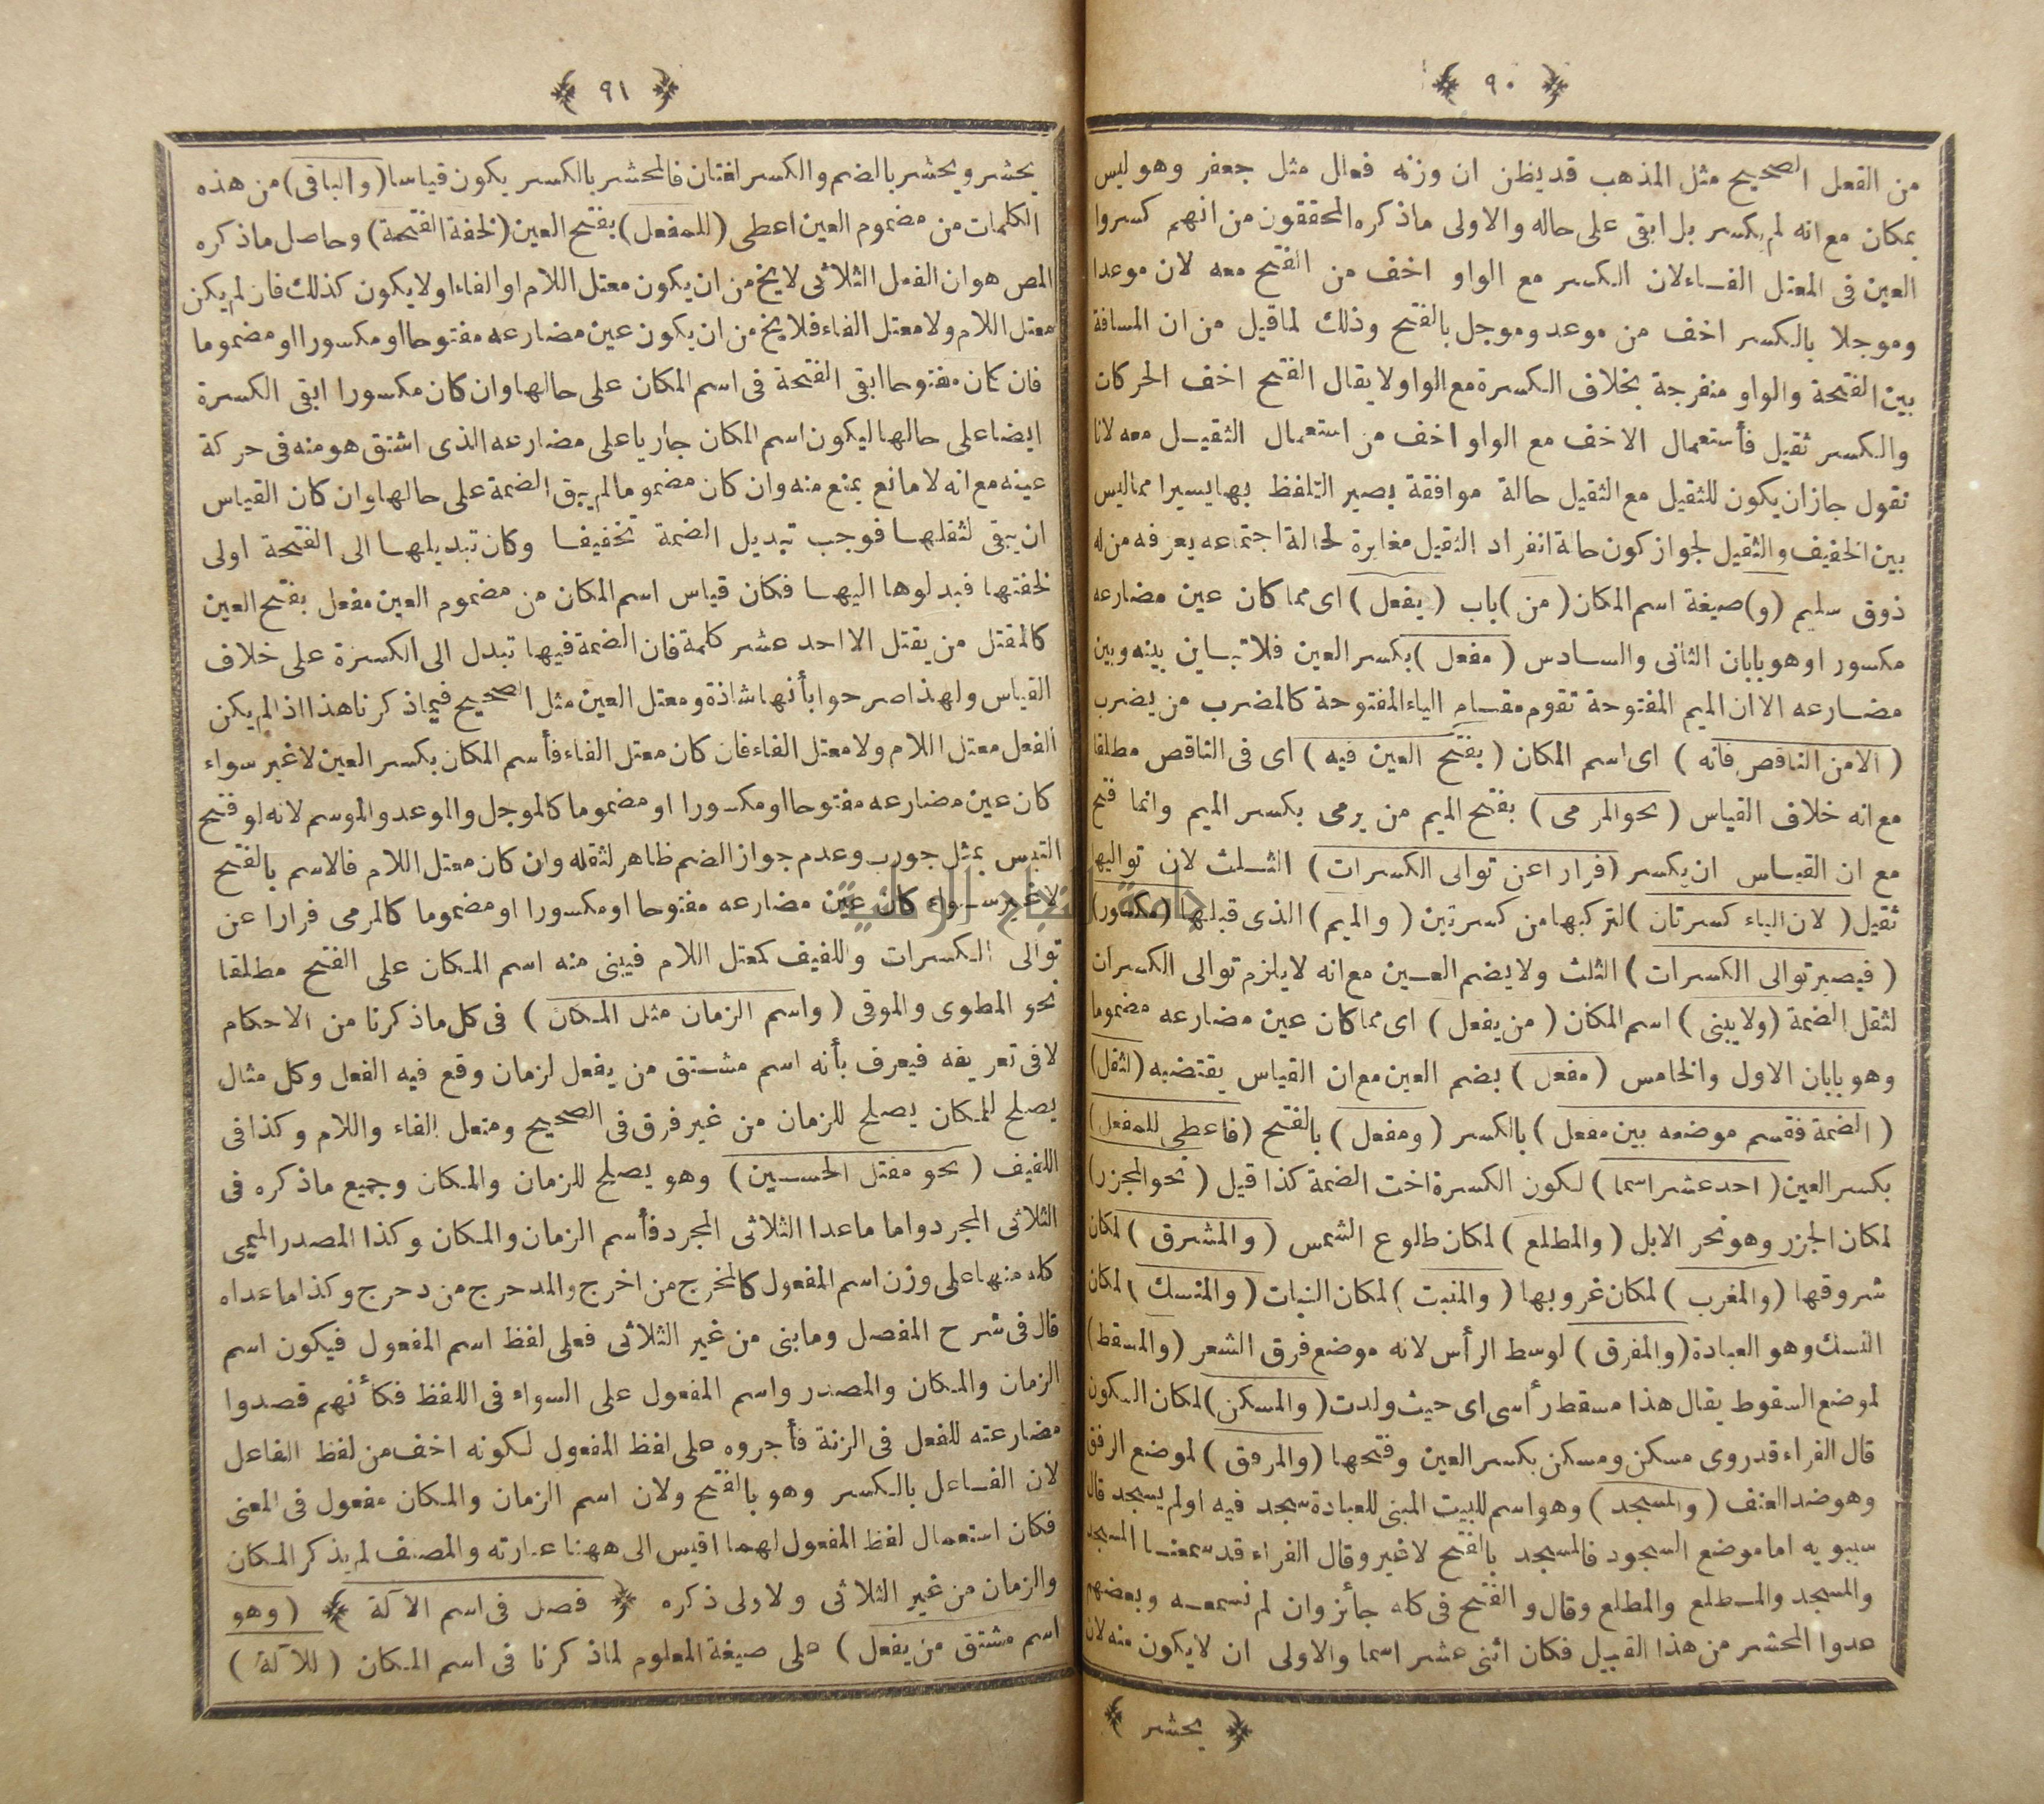 ﴿ ٩٠ ﴾
من الفعل الصحيح مثل المذهب قد يظن ان وزنه فعال مثل جعفر وهو ليس
بمكان مع انه لم يكسر بل ابقى على حاله والاولى ماذكره المحققون من انهم كسروا
العين فى المعتل الفاء لان الكسر مع الواو اخف من الفتح معه لان موعدا
وموجلا بالكسر اخف من موعد وموجل بالفتح وذلك لما قيل من ان المسافة
بين الفتحة والواو منفرجة بخلاف الكسرة مع الواو لا يقال الفتح اخف الحركات
والكسر ثقيل فأستعمال الاخف مع الواو اخف من استعمال الثقيل معه لانا
نقول جاز ان يكون للثقيل مع الثقيل حالة موافقة يصير التلفظ بها يسيرا مما ليس
بين الخفيف والثقيل لجواز كون حالة انفراد الثقيل مغايرة لحالة اجتماعه يعرفه من له
ذوق سليم (و) صيغة اسم المكان (من) باب (يفعل) اى مما كان عين مضارعه
مكسورا وهو بابان الثانى والسادس (مفعل) بكسر العين فلا تباين بينه وبين
مضارعه الا ان الميم المفتوحة تقوم مقام الياء المفتوحة كالمضرب من يضرب
(الا من الناقص فانه) اى اسم المكان (بفتح العين فيه) اى فى الناقص مطلقا
مع انه خلاف القياس (نحو المرمى) بفتح الميم من يرمى بكسر الميم وانما فتح
مع ان القياس ان يكسر (فرارا عن توالى الكسرات) الثلث لان تواليها
ثقيل (لان الياء كسرتان) لتركبها من كسرتين (والميم) الذى قبلها (مكسور)
(فيصير توالى الكسرات) الثلث ولا يضم العين مع انه لا يلزم توالى الكسرات
لثقل الضمة (ولا يبنى) اسم المكان (من يفعل) اى مما كان عين مضارعه مضموما
وهو بابان الاول والخامس (مفعل) بضم العين مع ان القياس يقتضيه (لثقل)
(الضمة فقسم موضعه بين مفعل) بالكسر (ومفعل) بالفتح (فاعطى للمفعل)
بكسر العين (احد عشر اسما) لكون الكسرة اخت الضمة كذا قيل (نحو المجزر)
لمكان الجزر وهو نحر الابل (والمطلع) لمكان طلوع الشمس (والمشرق) لمكان
شروقها (والمغرب) لمكان غروبها (والمنبت) لمكان النبات (والمنسك) لمكان
النسك وهو العبادة (والمفرق) لوسط الرأس لانه موضع فرق الشعر (والمسقط)
لموضع السقوط يقال هذا مسقط رأسى اى حيث ولدت (والمسكن) لمكان السكون
قال الفراء قد روى مسكن ومسكن بكسر العين وفتحها (والمرفق) لموضع الرفق
وهو ضد العنف (والمسجد) وهو اسم للبيت المبنى للعبادة سجد فيه اولم يسجد قال
سيبويه اما موضع السجود فالمسجد بالفتح لا غير وقال الفراء قد سمعنا المسجد
والمسجد والمطلع والمطلع وقال والفتح فى كله جائز وان لم نسمعه وبعضهم
عدوا المحشر من هذا القبيل فكان اثنى عشر اسما والاولى ان لا يكون منه لان
﴿ يحشر ﴾
﴿ ٩١ ﴾
يحشر ويحشر بالضم والكسر لغتان فالمحشر بالكسر يكون قياسا (والباقى) من هذه
الكلمات من مضموم العين اعطى (للمفعل) بفتح العين (لخفة الفتحة) وحاصل ماذكره
المص هو ان الفعل الثلاثى لا يخ من ان يكون معتل اللام او الفاء او لا يكون كذلك فان لم يكن
معتل اللام ولا معتل الفاء فلا يخ من ان يكون عين مضارعه مفتوحا او مكسورا او مضموما
فان كان مفتوحا ابقى الفتحة فى اسم المكان على حالها وان كان مكسورا ابقى الكسرة
ايضا على حالها ليكون اسم المكان جاريا على مضارعه الذى اشتق هو منه فى حركة
عينه مع انه لا مانع يمنع منه وان كان مضموما لم يبق الضمة على حالها وان كان القياس
ان يبقى لثقلها فوجب تبديل الضمة تخفيفا وكان تبديلها الى الفتحة اولى
لخفتها فبدلوها اليها فكان قياس اسم المكان من مضموم العين مفعل بفتح العين
كالمقتل من يقتل الا احد عشر كلمة فان الضمة فيها تبدل الى الكسرة على خلاف
القياس ولهذا صرحوا بأنها شاذة ومعتل العين مثل الصحيح فيما ذكرنا هذا اذا لم يكن
الفعل معتل اللام ولا معتل الفاء فان كان معتل الفاء فأسم المكان بكسر العين لا غير سواء
كان عين مضارعه مفتوحا او مكسورا او مضموما كالموجل والموعد والموسم لانه لو فتح
التبس بمثل جورب وعدم جواز الضم ظاهر لثقله وان كان معتل اللام فالاسم بالفتح
لا غير سواء كان عين مضارعه مفتوحا او مكسورا او مضموما كالمرمى فرارا عن
توالى الكسرات واللفيف كمعتل اللام فيبنى منه اسم المكان على الفتح مطلقا
نحو المطوى والموقى (واسم الزمان مثل المكان) فى كل ماذكرنا من الاحكام
لا فى تعريفه فيعرف بأنه اسم مشتق من يفعل لزمان وقع فيه الفعل وكل مثال
يصلح للمكان يصلح للزمان من غير فرق فى الصحيح ومتعل الفاء واللام وكذا فى
اللفيف (نحو مقتل الحسين) وهو يصلح للزمان والمكان وجميع ماذكره فى
الثلاثى المجرد واما ماعدا الثلاثى المجرد فأسم الزمان والمكان وكذا المصدر الميمى
كله منها على وزن اسم المفعول كالمخرج من اخرج والمدحرج من دحرج وكذا ماعداه
قال فى شرح المفصل وما بنى من غير الثلاثى فعلى لفظ اسم المفعول فيكون اسم
الزمان والمكان والمصدر واسم المفعول على السواء فى اللفظ فكأنهم قصدوا
مضارعته للفعل فى الزنة فأجروه على لفظ المفعول لكونه اخف من لفظ الفاعل
لان الفاعل بالكسر وهو بالفتح ولان اسم الزمان والمكان مفعول فى المعنى
فكان استعمال لفظ المفعول لهما اقيس الى ههنا عبارته والمصنف لم يذكر المكان
والزمان من غير الثلاثى ولاولى ذكره ﴿ فصل فى اسم الآلة ﴾ (وهو
اسم مشتق من يفعل) على صيغة المعلوم لما ذكرنا فى اسم المكان (للآلة)